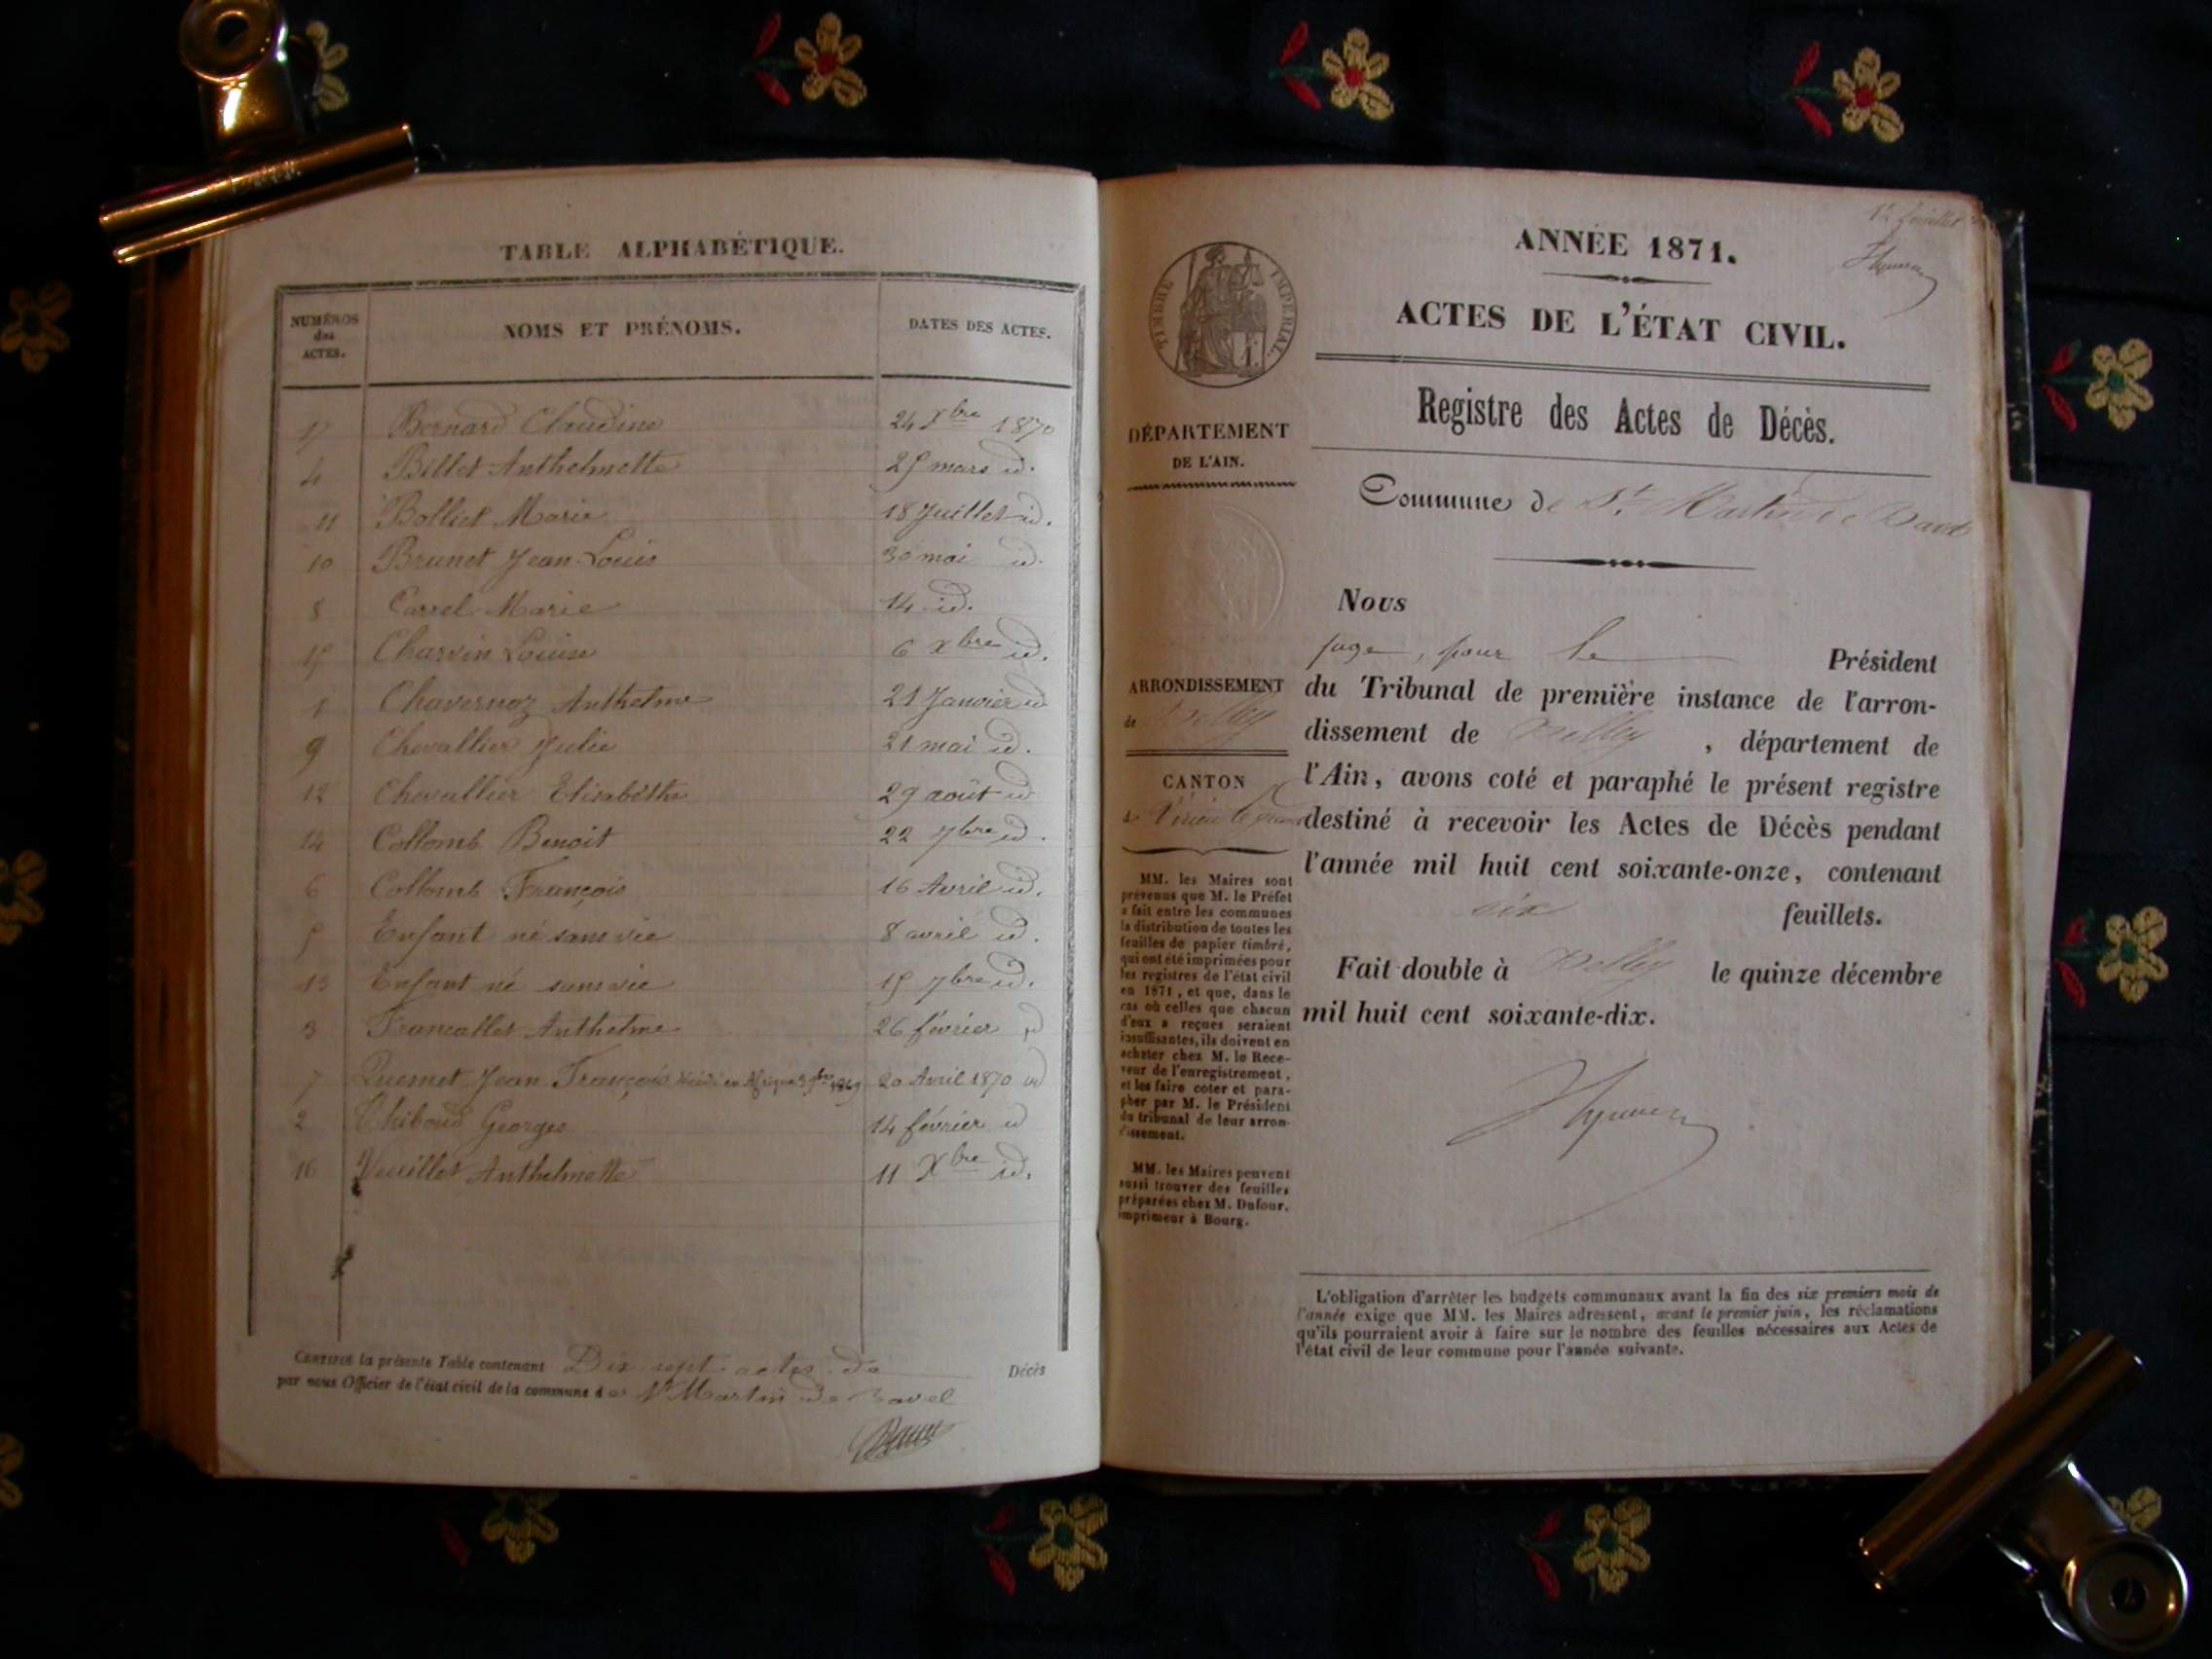 TABLE ALPHABÉTIQUE.
NUMÉROS des ACTES. NOMS ET PRÉNOMS. DATES DES ACTES.
17 Bernard Claudine 24 Xbre 1870
4 Billet Anthelmette 25 mars id.
11 Bolliet Marie 18 Juillet id.
10 Brunet Jean-Louis 30 mai id.
8 Carrel Marie 14 id.
15 Charvin Louise 6 Xbre id.
1 Chavernoz Anthelme 21 Janvier id
9 Chevallier Julie 21 mai id.
12 Chevallier Elisabethe 29 août id
14 Collomb Benoit 22 7bre id.
6 Collomb François 16 Avril id.
5 Enfant né sans vie 8 avril id.
13 Enfant né sans vie 15 7bre id.
3 Francallet Anthelme 26 février id
7 Jean François décédé en Afrique 1869 20 Avril 1870 id
2 Thiboud Georges 14 février id
16 Veuillet Anthelmette 11 Xbre id.
CERTIFIÉ la présente Table contenant Dix sept actes de Décès
par nous Officier de l'état civil de la commune de St Martin de Bavel
TIMBRE IMPERIAL.
DÉPARTEMENT
DE L'AIN.
ARRONDISSEMENT
de Belley
CANTON
de Virieu le grand
MM. les Maires sont
prévenus que M. le Préfet
a fait entre les communes
la distribution de toutes les
feuilles de papier timbré,
qui ont été imprimées pour
les registres de l'état civil
en 1871, et que, dans le
cas où celles que chacun
d'eux a reçues seraient
insuffisantes, ils doivent en
acheter chez M. le Rece-
veur de l'enregistrement,
et les faire coter et para-
pher par M. le Président
du tribunal de leur arron-
dissement.
MM. les Maires peuvent
aussi trouver des feuilles
préparées chez M. Dufour,
imprimeur à Bourg.
ANNÉE 1871.
ACTES DE L'ÉTAT CIVIL.
Registre des Actes de Décès.
Commune de St Martin de Bavel
Nous
juge, pour le Président
du Tribunal de première instance de l'arron-
dissement de Belley, département de
l'Ain, avons coté et paraphé le présent registre
destiné à recevoir les Actes de Décès pendant
l'année mil huit cent soixante-onze, contenant
six feuillets.
Fait double à Belley le quinze décembre
mil huit cent soixante-dix.
L'obligation d'arrêter les budgets communaux avant la fin des six premiers mois de
l'année exige que MM. les Maires adressent, avant le premier juin, les réclamations
qu'ils pourraient avoir à faire sur le nombre des feuilles nécessaires aux Actes de
l'état civil de leur commune pour l'année suivante.